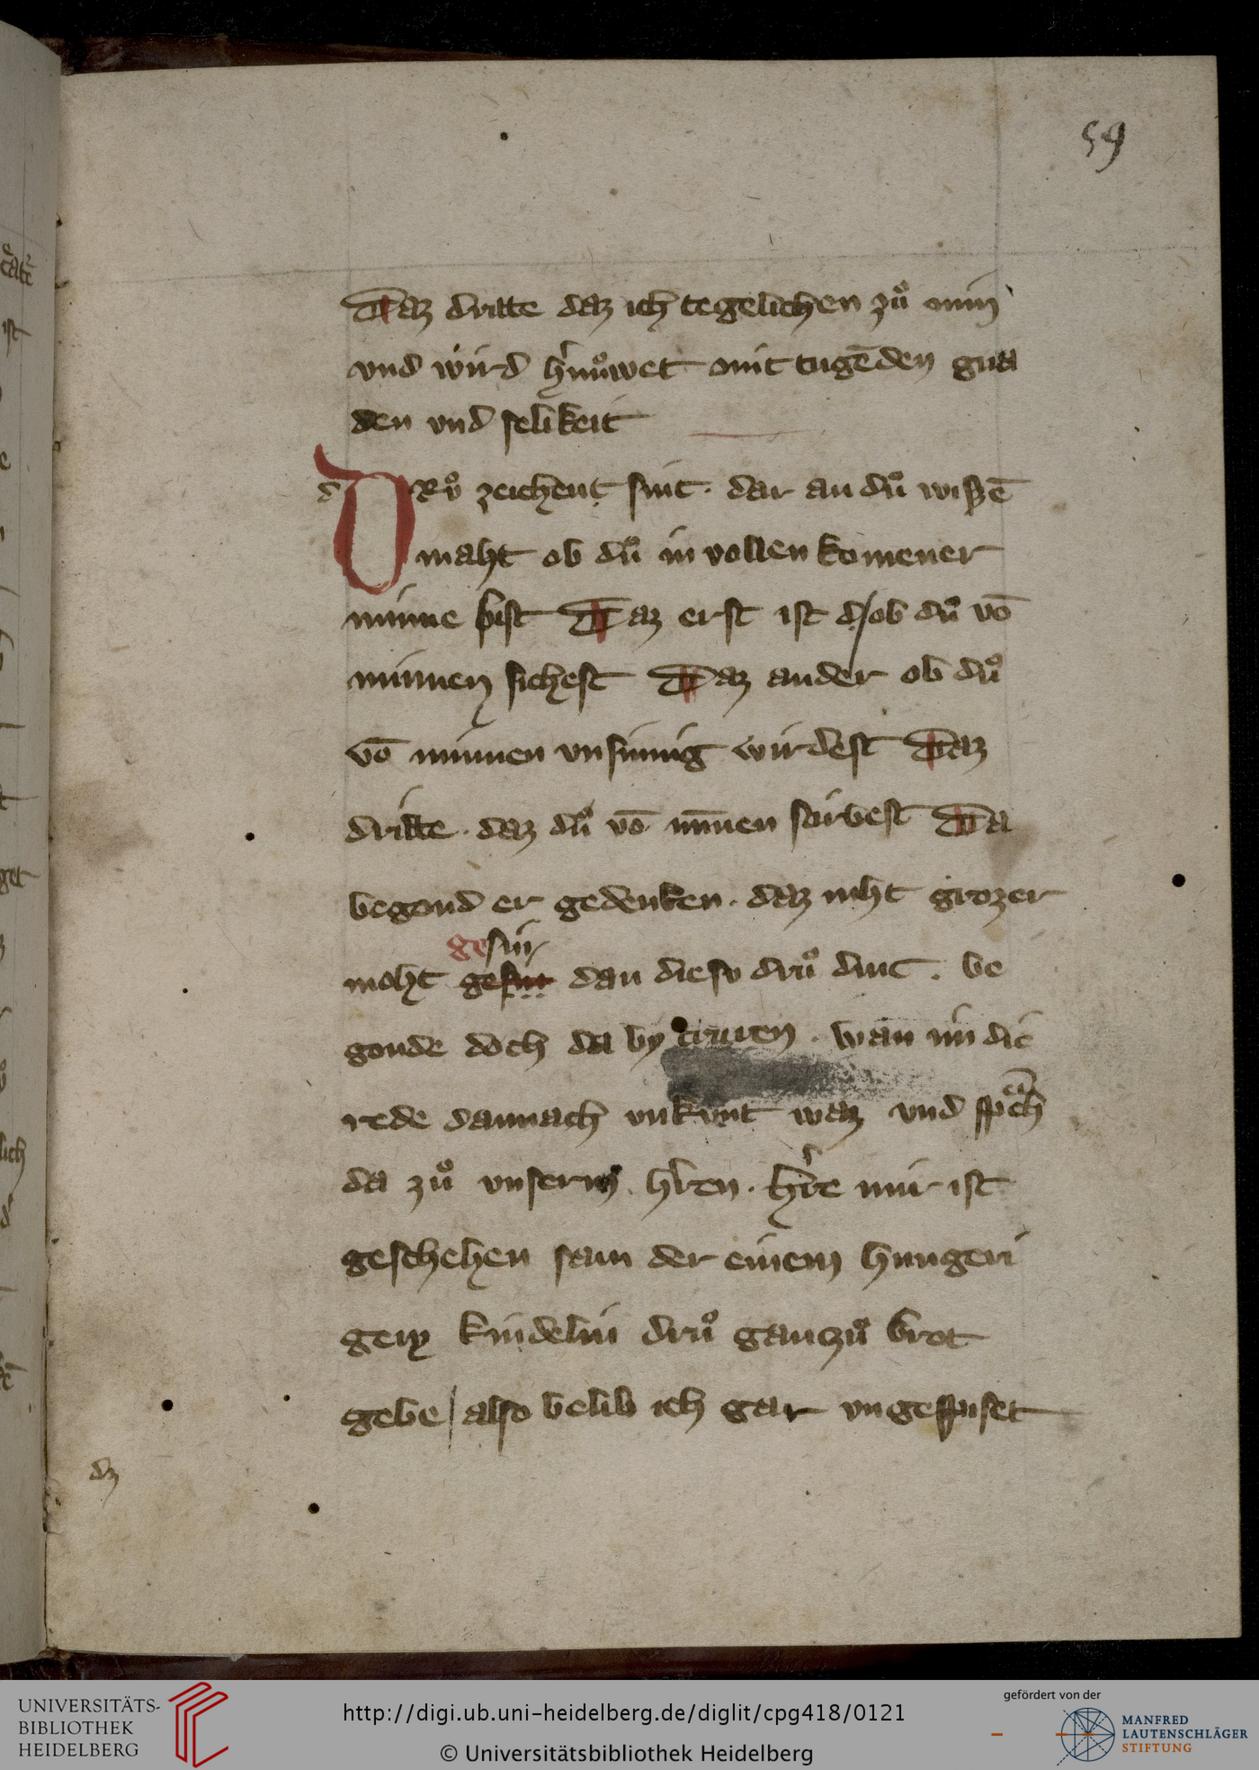 59
Daz dritte daz ich tegelichen zuͦ nim
vnd wird h'nuͦwet mit tugēden gna
den vnd selikeit
DRuͦ zeichent sint. dar an duͦ wissē
maht ob duͦ in vollen komener
minne bist Daz erst ist dz ob duͦ vō
minnen sichest Daz ander ob duͦ
vō minnen vnsinnig wirdest Daz
dritte. daz duͦ vō minen stirbest Da
begond er gedenken. daz niht grozer
gesin
moht gesin dan diesv druͦ dinc. be
gonde doch da by truren. wan im die
rede dannach vnkunt waz vnd sp̄ch
da zuͦ vnserm h'ren. h're mir ist
geschehen sam der einem hungeri
gem kindelin druͦ ganczuͦ brot
gebe also belib ich gar vngespiset
dz
UNIVERSITÄTS-
BIBLIOTHEK
HEIDELBERG
http://digi.ub.uni-heidelberg.de/diglit/cpg418/0121
© Universitätsbibliothek Heidelberg
gefördert von der
MANFRED
LAUTENSCHLÄGER
STIFTUNG